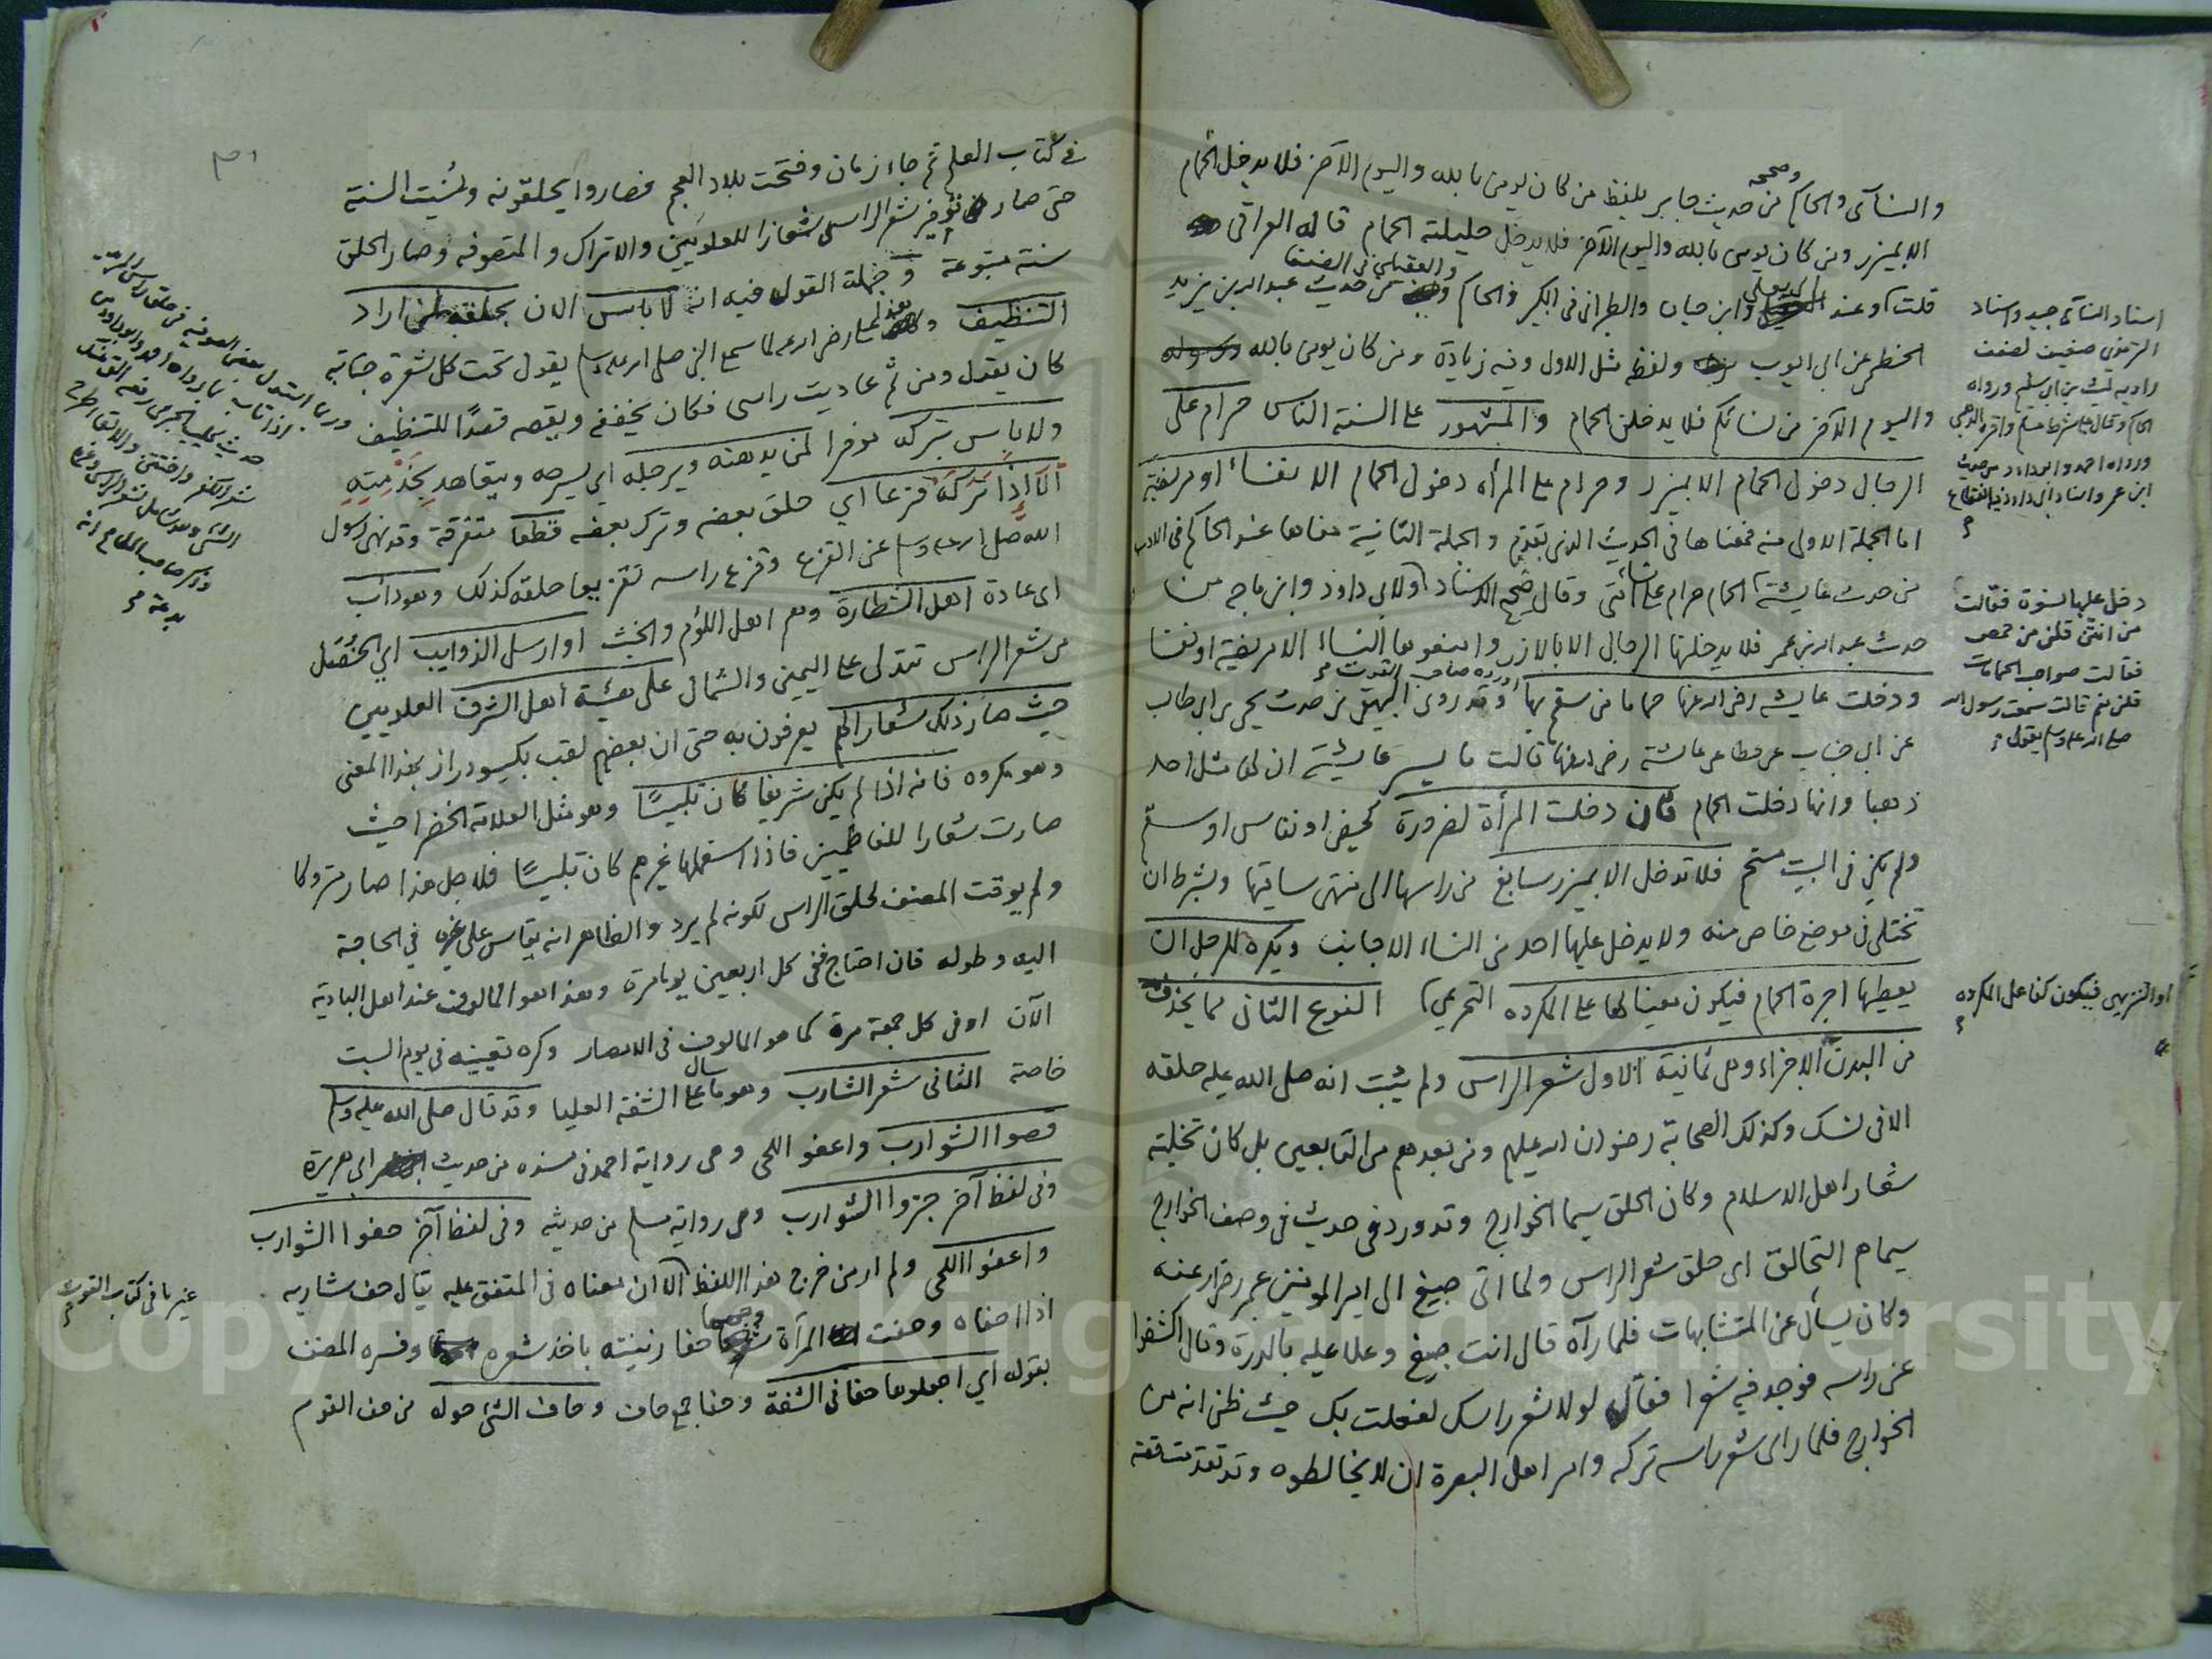 والنسآى والحاكم وصححه من حديث جابر بلفظ من كان يومن بالله واليوم الآخر فلا يدخل الحمام
الا بميزر ومن كان يومن بالله واليوم الآخر فلا يدخل حليلته الحمام قاله العراقى
قلت وعند ابى يعلى وابن حبان والطبرانى فى الكبير والحاكم والعقيلى فى الضعفا من حديث عبد الله بن يزيد
الخطمى عن ابى ايوب ولفظه مثل الاول وفيه زيادة ومن كان يومن بالله
واليوم الاخر من نسائكم فلا يدخلن الحمام والمشهور على السنة الناس حرام على
الرجال دخول الحمام الا بميزر وحرام على المرأة دخول الحمام الا نفساء او مريضة
اما الجملة الاولى منه فمعناها فى الحديث الذى تقدم والجملة الثانية معناها عند الحاكم فى الادب
من حديث عايشة الحمام حرام على نساء امتى وقال صحيح الاسناد ولابى داود وابن ماجه من
حديث عبد الله بن عمر فلا يدخلنها الرجال الا بالازر وامنعوها النساء الا مريضة او نفسا
ودخلت عايشه رضى الله عنها حماما من سقم بها اورده صاحب القوت وقد روى البيهقى من حديث يحيى بن ابى طالب
عن ابى جناب عن عطا عن عائشة رضى الله عنها قالت ما يسر عايشة ان لها مثل احد
ذهبا وانها دخلت الحمام فان دخلت المرأة لضرورة كحيض او نفاس او سقم
ولم يكن فى البيت مستحم فلا تدخل الا بميزر سابغ من راسها الى منتهى ساقيها وبشرط ان
تختلى فى موضع خاص منه ولا يدخل عليها احد من النساء الاجانب ويكره للرجل ان
يعطيها اجرة الحمام فيكون معينا لها على المكروه التحريمى النوع الثانى مما يحذف
من البدن الاجزاء وهى ثمانية الاول شعر الراس ولم يثبت انه صلى الله عليه حلقه
الا فى نسك وكذلك الصحابة رضوان الله عليهم ومن بعدهم من التابعين بل كان تخليته
شعار اهل الاسلام وكان الحلق سيما الخوارج وقد ورد فى حديث فى وصف الخوارج
سيماهم التحالق اى حلق شعر الراس ولما اتى صبيغ الى امير المومنين عمر رضى الله عنه
وكان يسأل عن المتشابهات فلما رآه قال انت صبيغ وعلا عليه بالدرة وقال اكشفوا
عن راسه فوجد فيه شعرا فقال لولا شعر راسك لفعلت بك حيث ظن انه من
الخوارج فلما راى شعر راسه تركه وامر اهل البصرة ان لا يخالطوه وقد تقدمت قصته
اسناد النسآى جيد واسناد
الترمذى ضعيف لضعف
راويه ليث بن ابى سليم ورواه
الحاكم وقال على شرط مسلم واقره الذهبى
ورواه احمد وابو داود من حديث
ابن عمر واسناد ابى داود فيه انقطاع
دخل عليها نسوة فقالت
من انتن قلن من حمص
فقالت صواحب الحمامات
قلن نعم قالت سمعت رسول الله
صلى الله عليه وسلم يقول
او التنزيهى فيكون كفا على المكروه
فى كتاب العلم ثم جاء زمان وفتحت بلاد العجم فصاروا يحلقونه ونسيت السنة
حتى صار توفير شعر الراس شعارا للعلويين والاتراك والمتصوفه وصار الحلق
سنة متبوعة وجملة القول فيه انه لا باس الان بحلقه لمن اراد
التنظيف رضى الله عنه لما سمع النبى صلى الله عليه وسلم يقول تحت كل شعرة جنابة
كان يقول ومن ثم عاديت راسى فكان يخففه ويقصه قصدا للتنظيف
ولا باس بتركه موفرا لمن يدهنه ويرجله اى يسرحه ويتعاهد بخدمته
الا اذا تركه قزعا اى حلق بعضه وترك بعضه قطعا متفرقة وقد نهى رسول
الله صلى الله عليه وسلم عن القزع وقزع راسه تقزيعا حلقه كذلك وهو داب
اى عادة اهل الشطارة وهم اهل اللؤم والخبث او ارسل الذوايب اى الخصل
من شعر الراس تتدلى على اليمين والشمال على هيئة اهل الشرف العلويين
حيث صار ذلك شعارا لهم يعرفون به حتى ان بعضهم لقب بكيسودراز بهذا المعنى
وهو مكروه فانه اذا لم يكن شريفا كان تلبيسا وهو مثل العلامة الخضرا حيث
صارت شعارا للفاطميين فاذا استعملها غيرهم كان تلبيسا فلاجل هذا صار متروكا
ولم يوقت المصنف لحلق الراس لكونه لم يرد والظاهر انه يقاس على غيره فى الحاجة
اليه وطوله فان احتاج ففى كل اربعين يوما مرة وهذا هو المالوف عند اهل البادية
الآن او فى كل جمعة مرة كما هو المالوف فى الامصار وكره تعيينه فى يوم السبت
خاصة الثانى شعر الشارب وهو ما سال على الشفة العليا وقد قال صلى الله عليه وسلم
قصوا الشوارب واعفوا اللحى وهى رواية احمد فى مسنده من حديث ابى هريرة
وفى لفظ آخر جزوا الشوارب وهى رواية مسلم من حديثه وفى لفظ آخر حفوا الشوارب
واعفوا اللحى ولم ار من خرج هذا اللفظ الا ان معناه فى المتفق عليه يقال حف شاربه
اذا احفاه وحفت المرأة وجهها حفا زينته باخذ شعره وفسره المصنف
بقوله اى اجعلوها حفافى الشفة وحفا جمع حاف وحاف الشئ حوله من حف القوم
وربما استدل بعض الصوفية فى حلق راس
بما رواه احمد وابو داود من
وذكر صاحب
بدعة
غير ما فى كتاب القوت
Copyright © King Saud University